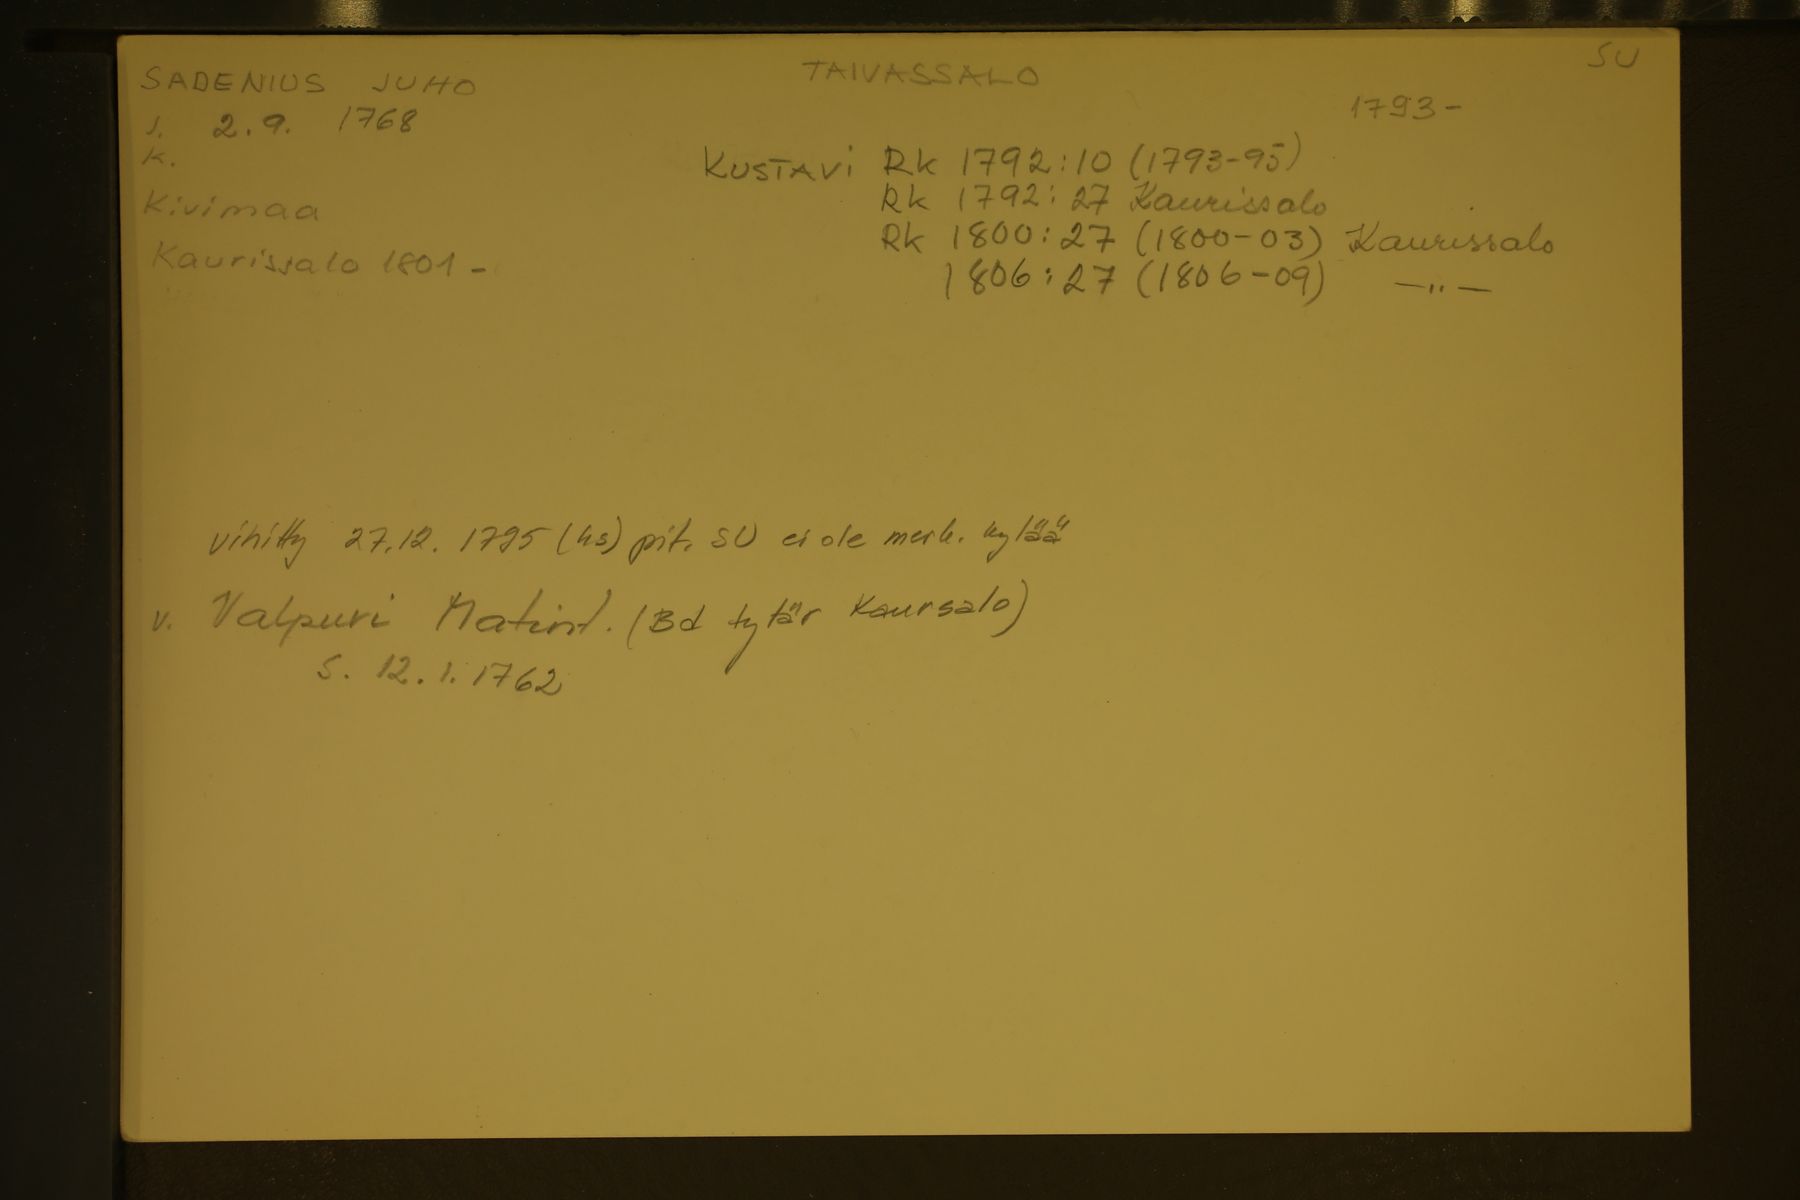 SADENIUS JUHO TAIVASSALO SU
s. 2.9. 1768 1793-
k. KUSTAVI Rk 1792:10 (1793-95)
Kivimaa Rk 1792:27 Kaurissalo
Rk 1800:27 (1800-03) Kaurissalo
Kaurissalo 1801- 1806:27 (1806-09) -"-
vihitty 27.12. 1795 (ks) pit. SU ei ole merk. kylää
v. Valpuri Matint. (Bd tytär Kaursalo)
s. 12.1.1762